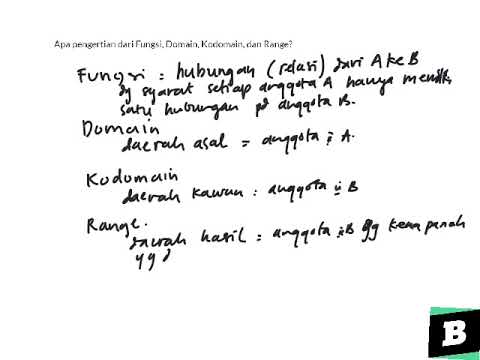 Apa pengertian dari Fungsi, Domain, Kodomain, dan Range?
Fungsi = hubungan (relasi) dari A ke B
dg syarat setiap anggota A hanya memilik
satu hubungan pd anggota B.
Domain
daerah asal = anggota² A.
Kodomain
daerah kawan = anggota² B
Range.
daerah hasil = anggota² B yg kena panah
yg
B